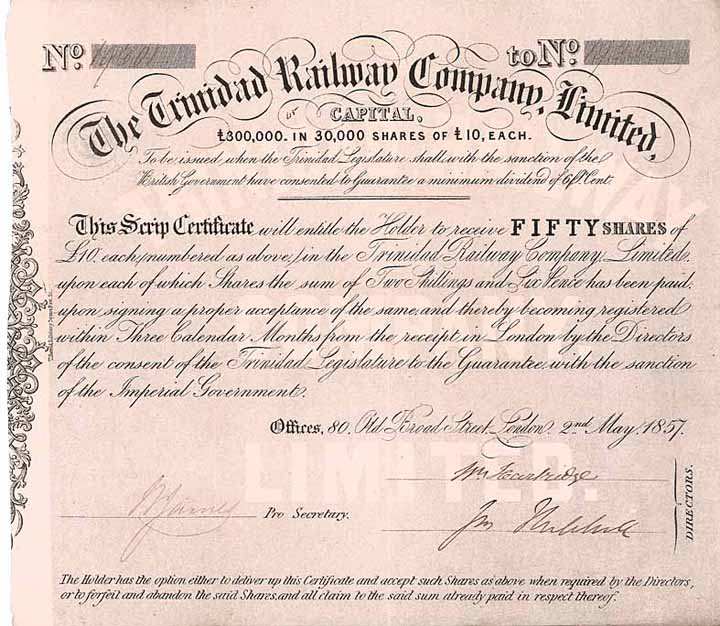 No. to No.
The Trinidad Railway Company, Limited,
or
CAPITAL.
£300,000. IN 30,000 SHARES OF £10, EACH.
To be issued when the Trinidad Legislature shall, with the sanction of the
British Government have consented to Guarantee a minimum dividend of 6 P. Cent.
This Scrip Certificate, will entitle the Holder to receive FIFTY SHARES of
£10, each, numbered as above, in the Trinidad Railway Company, Limited,
upon each of which Shares the sum of Two Shillings and Six Pence has been paid,
upon signing a proper acceptance of the same, and thereby becoming registered
within Three Calendar Months from the receipt in London by the Directors
of the consent of the Trinidad Legislature to the Guarantee, with the sanction
of the Imperial Government.
Offices, 80, Old Broad Street, London, 2nd May, 1857.
Pro Secretary.
DIRECTORS.
The Holder has the option either to deliver up this Certificate and accept such Shares as above when required by the Directors,
or to forfeit and abandon the said Shares, and all claim to the said sum already paid in respect thereof.
COMPANY
LIMITED.